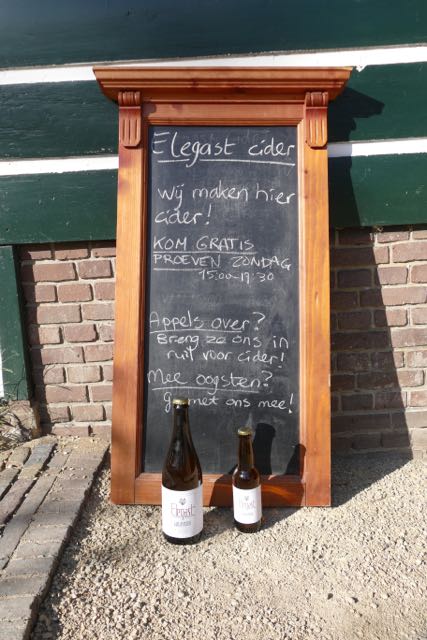 Elegast cider
Wij maken hier
cider!
KOM GRATIS
PROEVEN ZONDAG
15:00-17:30
Appels over?
Breng ze ons in
ruil voor cider!
Mee oogsten?
Ga met ons mee!
ELEGAST
ELEGAST